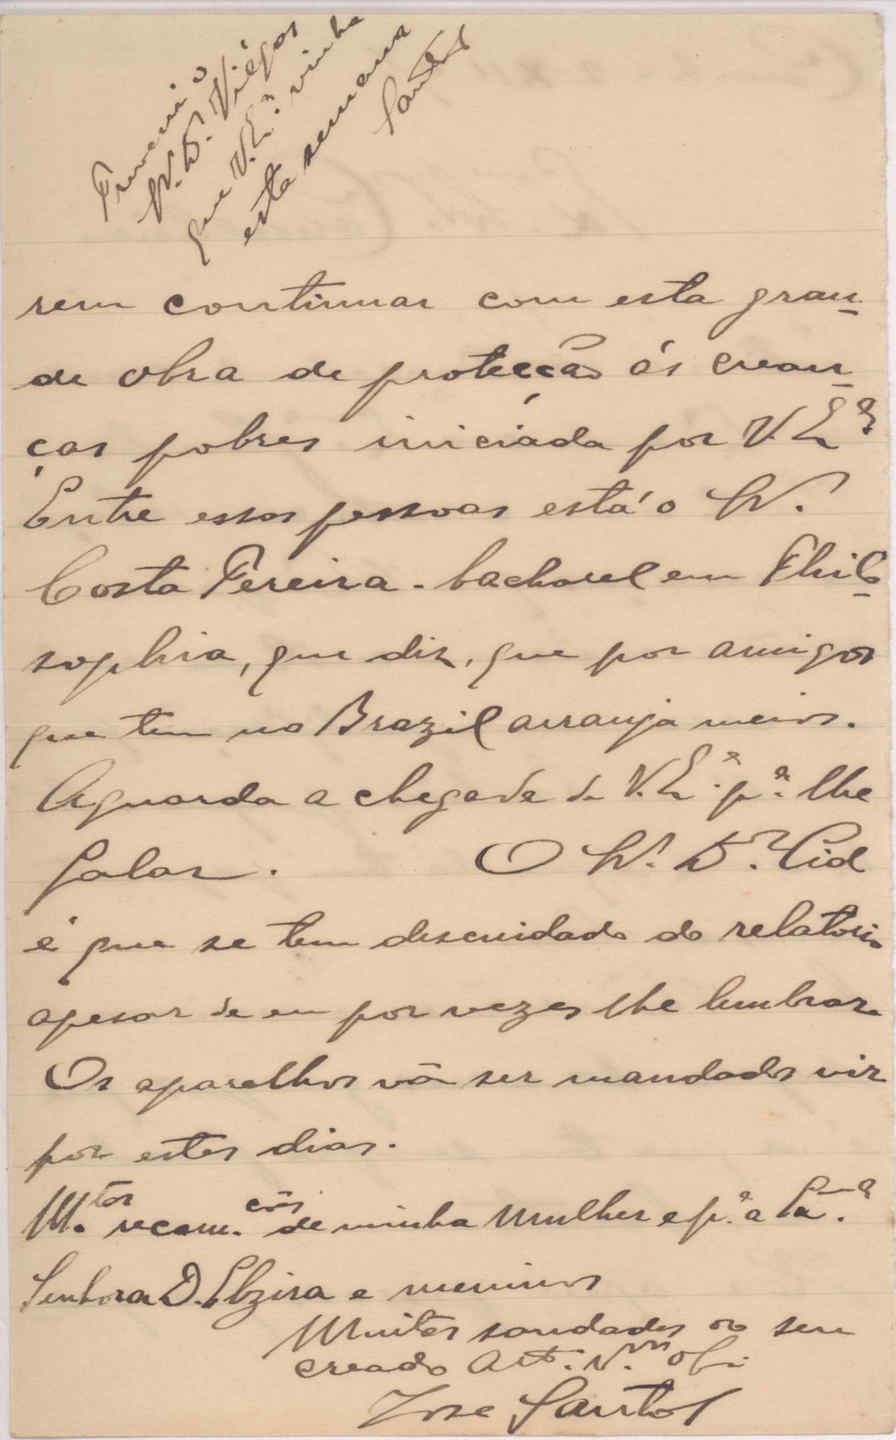 Preveni o
Sr. Dr. Viégas
que V. Ex.ª vinha
esta semana
Santos
rem continuar com esta gran-
de obra de protecção ás crean-
ças pobres iniciada por V. Ex.ª
Entre essas pessoas está o Sr.
Costa Fereira - bacharel em Philo-
sophia, que diz, que por amigos
que tem no Brazil arranja meios.
Aguarda a chegada de V. Ex.ª p.ª lhe
falar. O Sr. Dr. Cid
é que se tem descuidado do relatorio
apesar de eu por vezes lhe lembrar.
Os aparelhos vão ser mandados vir
por estes dias.
M.tos recom.ções de minha mulher e p.ª a Ex.ma
Senhora D. Elzira e meninos
Muitas saudades do seu
creado Att.º V.or obr.
Jose Santos